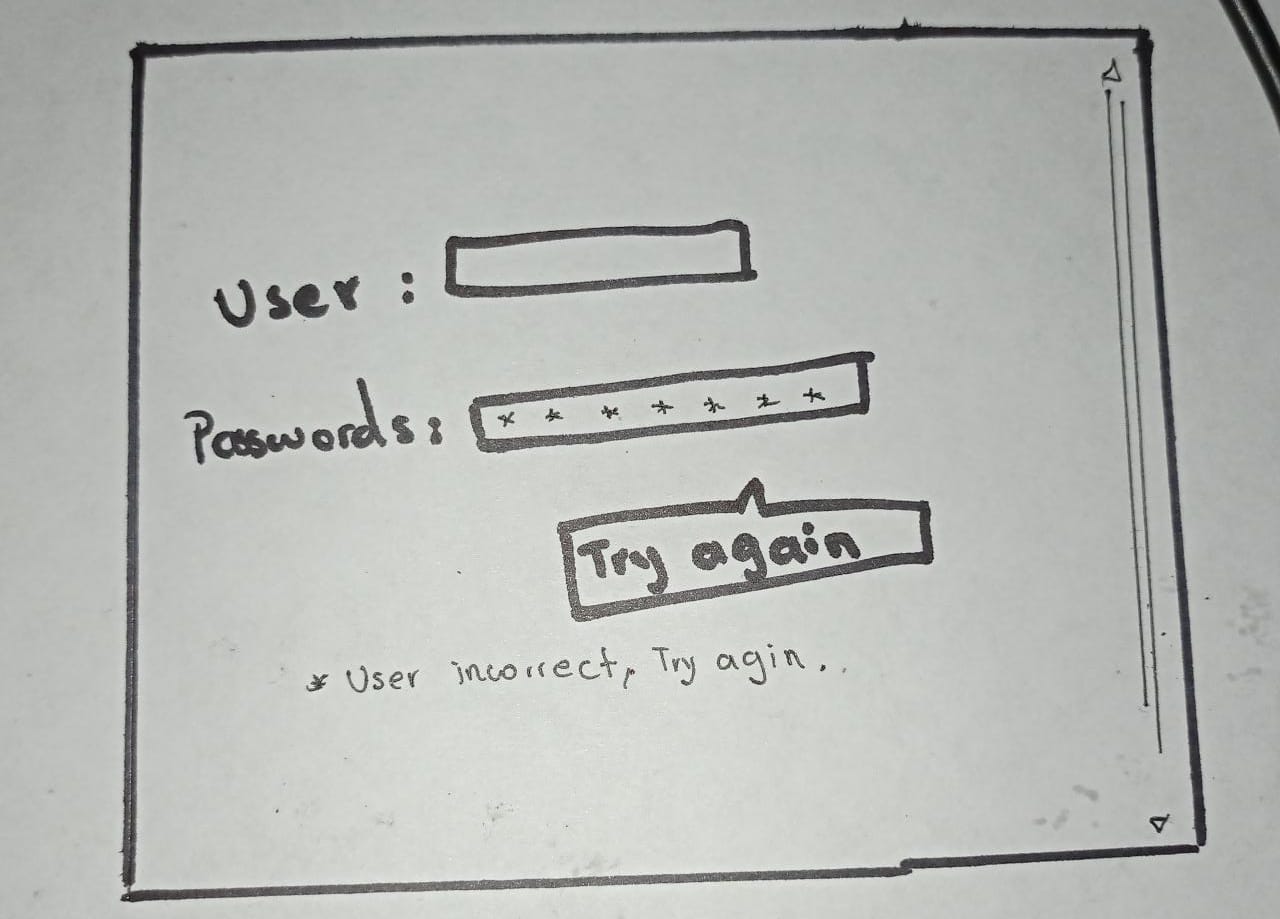 User :
Passwords:
* * * * * * *
Try again
* User incorrect, Try agin..